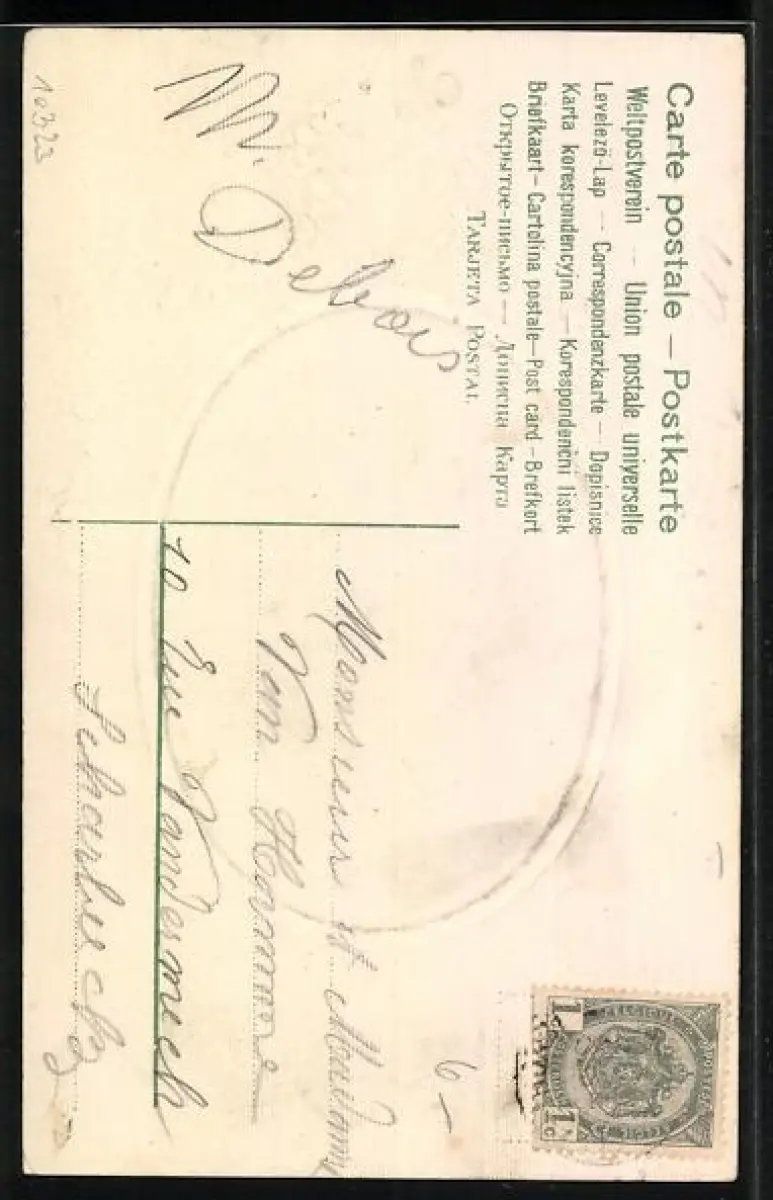 Carte postale — Postkarte
Weltpostverein — Union postale universelle
Levelező-Lap — Correspondenzkarte — Dopisnice
Karta korespondencyjna — Korespondenční listek
Briefkaart — Cartolina postale — Post card — Brefkort
Открытое-письмо — Дописна Карта
TARJETA POSTAL
M. Debois
10323
Monsieur et Madame
Van Hamme
10 Rue
6 —
1
1 c
BELGIQUE